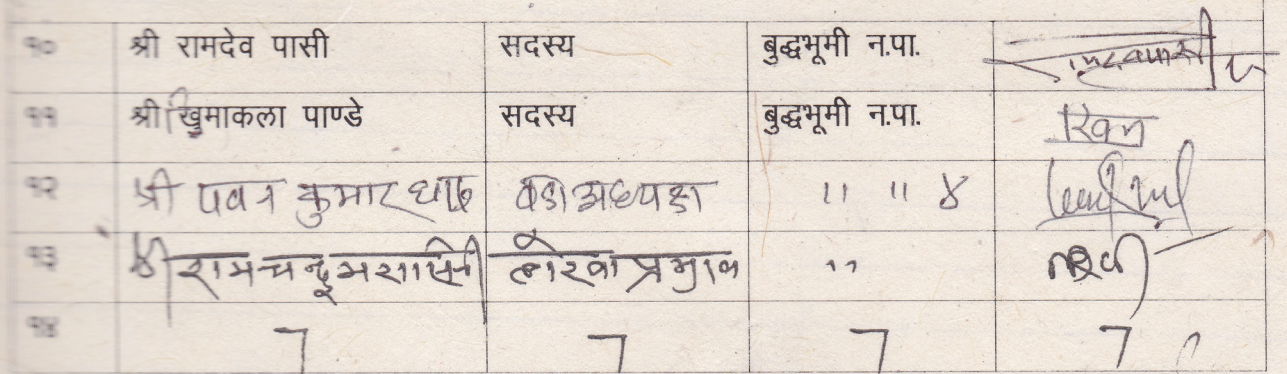 १० श्री रामदेव पासी सदस्य बुद्धभूमी न.पा.
११ श्री खिमाकला पाण्डे सदस्य बुद्धभूमी न.पा. खिम
१२ श्री पवन कुमार वडा अध्यक्ष " " ४
१३ श्री रामचन्द्र लेखा "
१४ 7 7 7 7